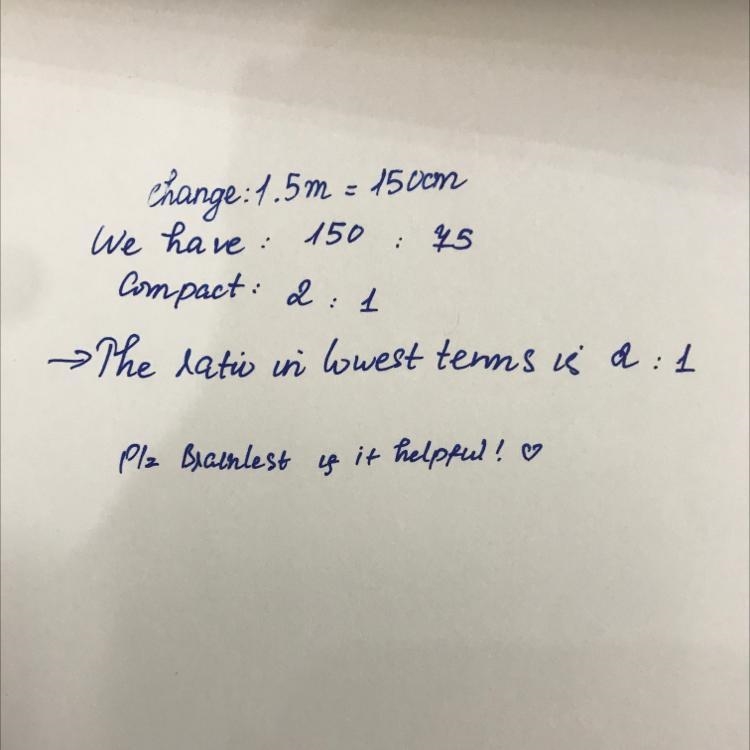 change: 1.5m = 150cm
We have : 150 : 75
Compact : 2 : 1
→ The ratio in lowest terms is 2 : 1
Plz Brainlest if it helpful! ♡